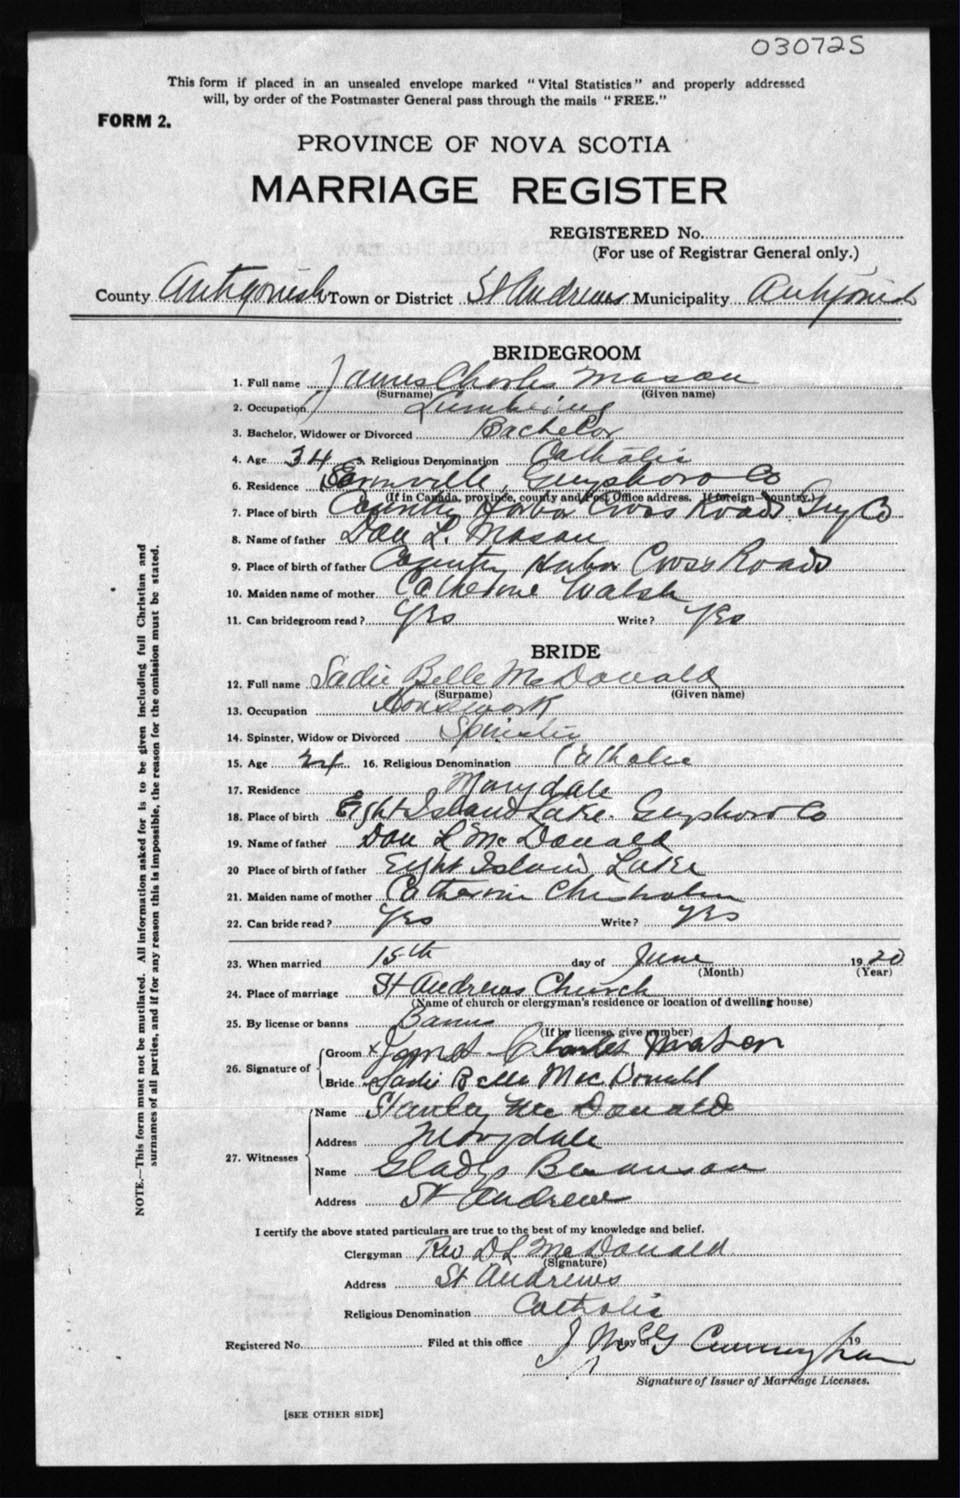 030725
This form if placed in an unsealed envelope marked "Vital Statistics" and properly addressed
will, by order of the Postmaster General pass through the mails "FREE."
FORM 2.
PROVINCE OF NOVA SCOTIA
MARRIAGE REGISTER
REGISTERED No.
(For use of Registrar General only.)
County Antigonish Town or District St Andrews Municipality Antigonish
BRIDEGROOM
1. Full name James Charles Mason
(Surname) (Given name)
2. Occupation Lumbering
3. Bachelor, Widower or Divorced Bachelor
4. Age 34 5. Religious Denomination Catholic
6. Residence Guysboro Co
(If in Canada, province, county and Post Office address. If foreign—country.)
7. Place of birth Country Harbor Cross Roads Guy Co
8. Name of father Dan L. Mason
9. Place of birth of father Country Harbor Cross Roads
10. Maiden name of mother Catherine Walsh
11. Can bridegroom read? Yes Write? Yes
BRIDE
12. Full name Sadie Belle McDonald
(Surname) (Given name)
13. Occupation Housework
14. Spinster, Widow or Divorced Spinster
15. Age 24 16. Religious Denomination Catholic
17. Residence Marydale
18. Place of birth Eight Island Lake. Guysboro Co
19. Name of father Dan L McDonald
20 Place of birth of father Eight Island Lake
21. Maiden name of mother Catherine Chisholm
22. Can bride read? Yes Write? Yes
23. When married 15th day of June 1920
(Month) (Year)
24. Place of marriage St Andrews Church
(Name of church or clergyman's residence or location of dwelling house)
25. By license or banns Banns
(If by license, give number)
26. Signature of Groom x James Charles Mason
Bride Sadie Belle MacDonald
27. Witnesses Name Stanley McDonald
Address Marydale
Name Gladys
Address St Andrews
I certify the above stated particulars are true to the best of my knowledge and belief.
Clergyman Rev D L McDonald
(Signature)
Address St Andrews
Religious Denomination Catholic
Registered No. Filed at this office day of 19
J Cunningham
Signature of Issuer of Marriage Licenses.
[SEE OTHER SIDE]
NOTE.—This form must not be mutilated. All information asked for is to be given including full Christian and
surnames of all parties, and if for any reason this is impossible, the reason for the omission must be stated.